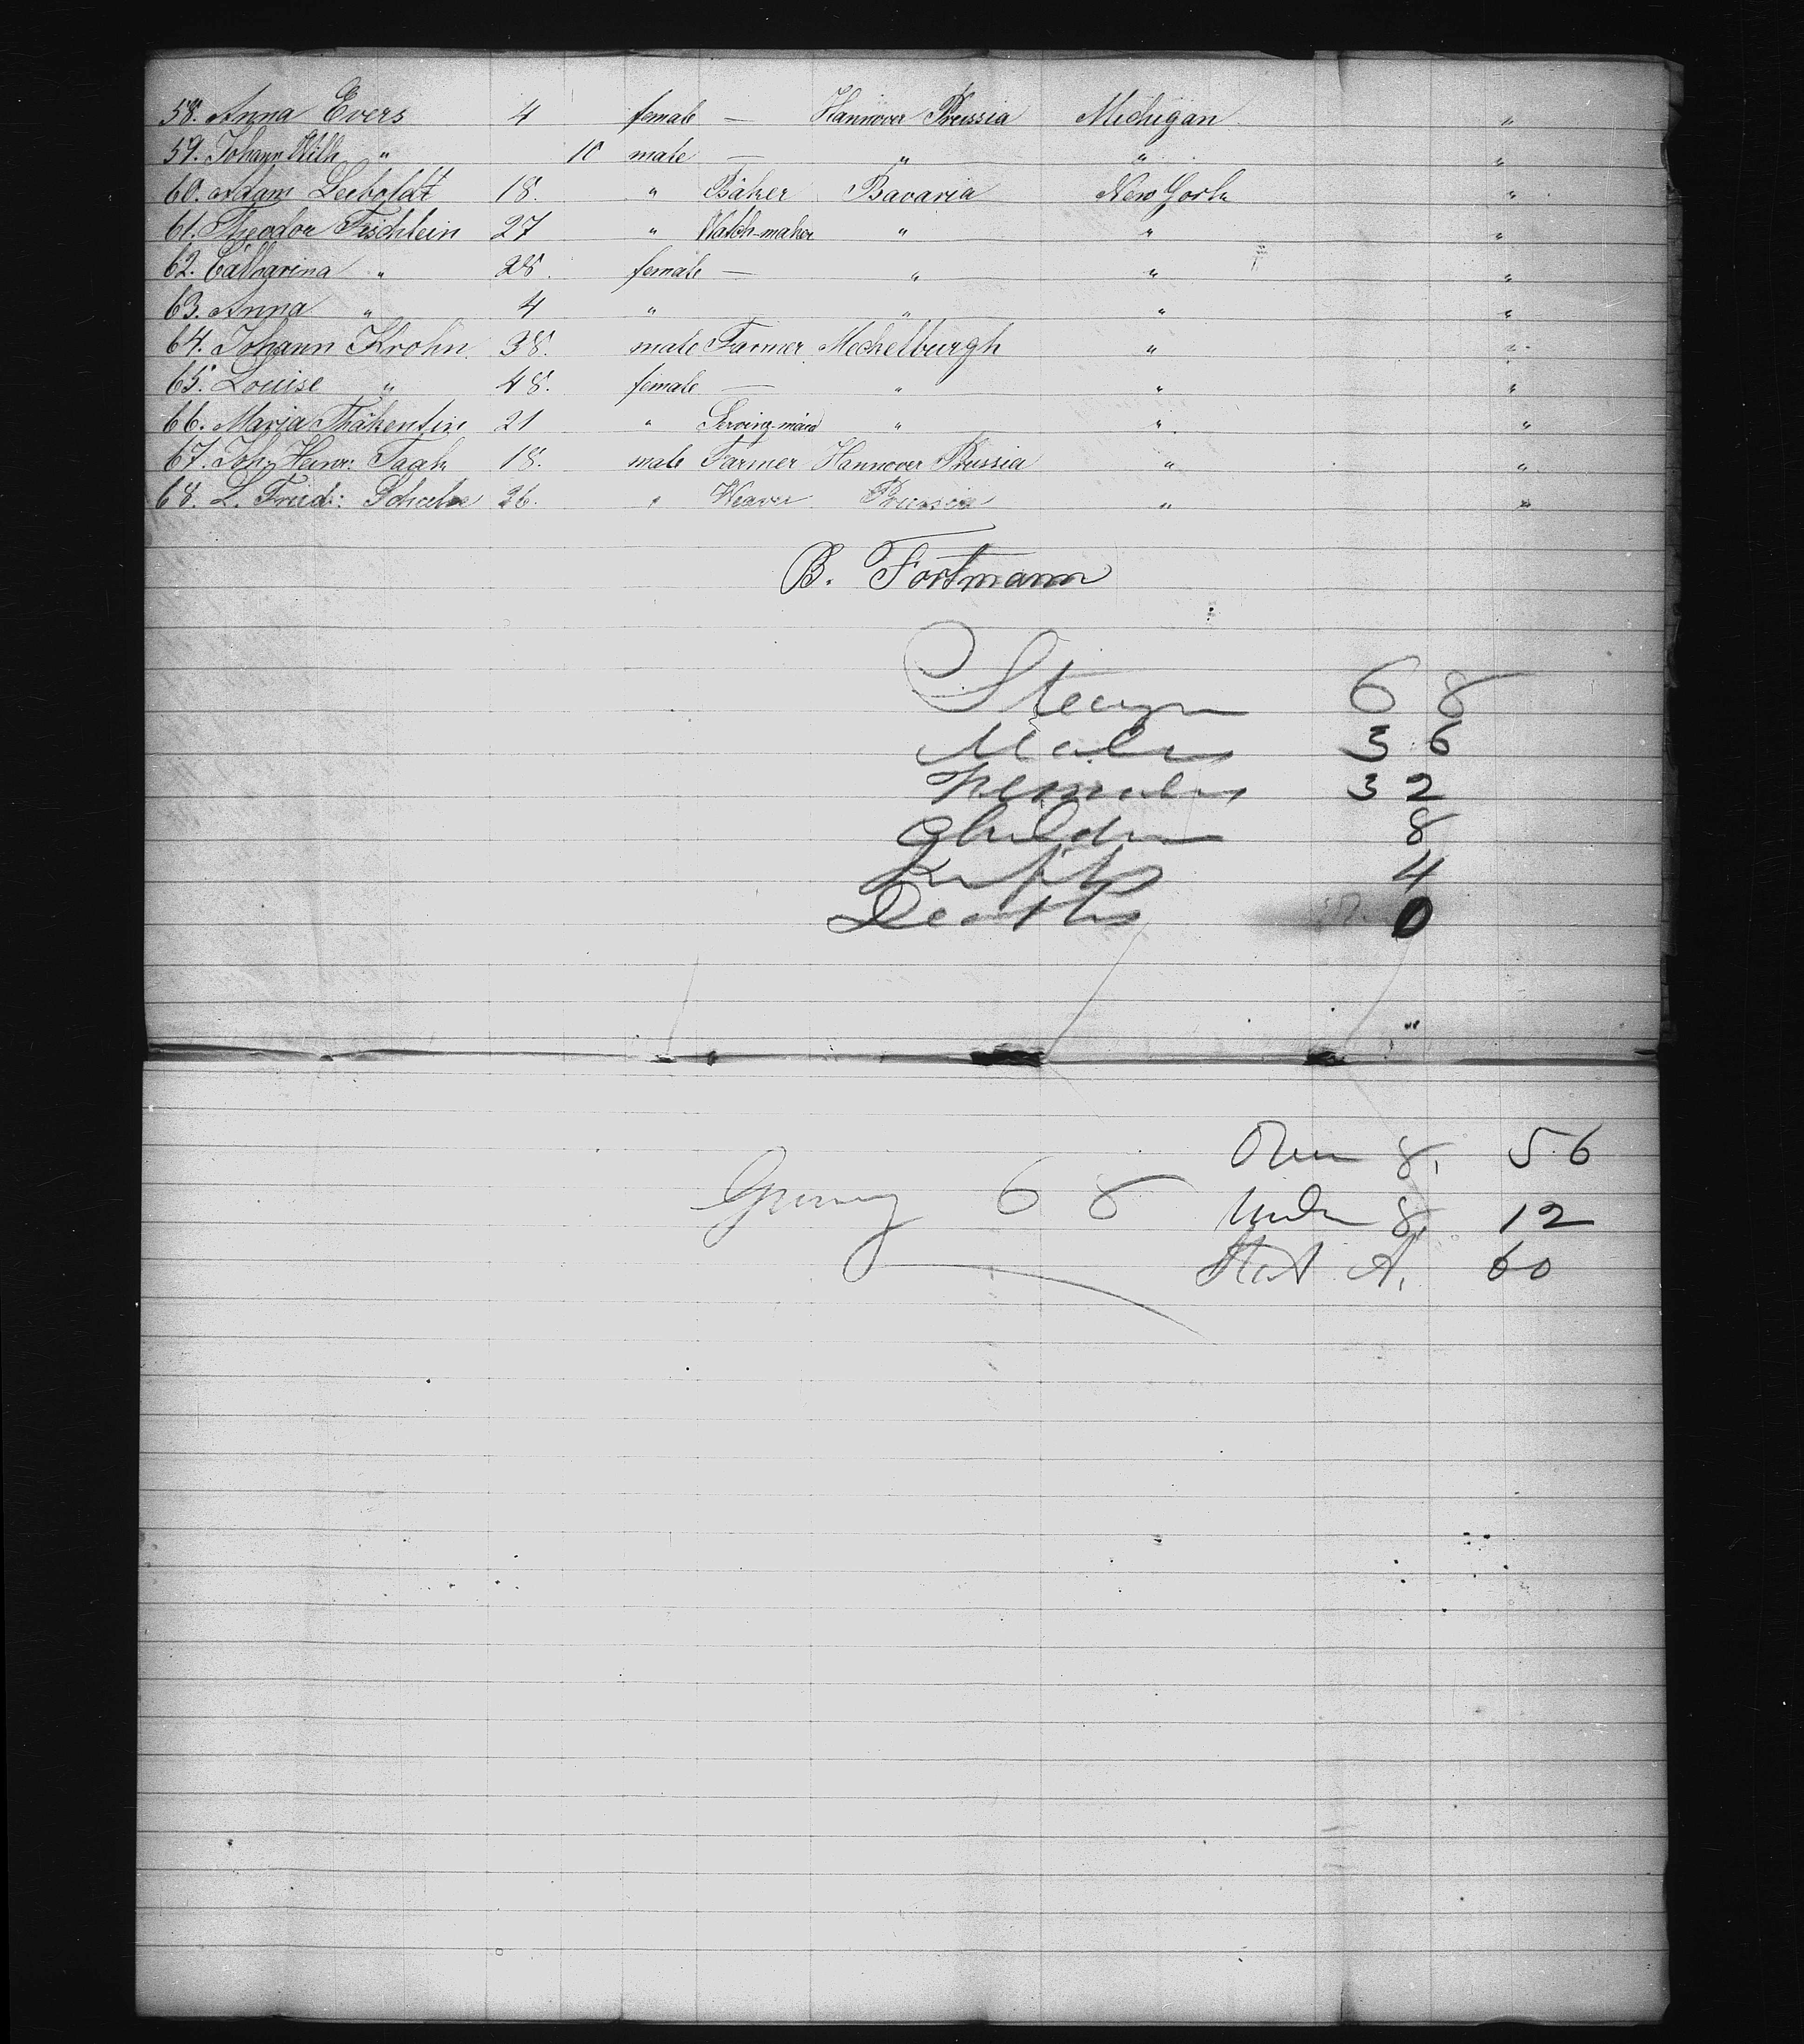 58. Anna Evers 4 female — Hannover Prussia Michigan "
59. Johann Wilh " 10 male — " " "
60. Adam Leeboldt 18. " Bäker Bavaria New York "
61. Theodor Fischlein 27 " Watch-maker " " "
62. Catharina " 28. female — " " "
63. Anna " 4 " " " "
64. Johann Krohn 38. male Farmer Meckelburgh " "
65. Louise " 48. female — " " "
66. Maria Thäkentin 21 " Serving-maid " " "
67. Joh. Heinr: Taak 18. male Farmer Hannover Prussia " "
68. L. Fried: Schulze 26. " Weaver Prussia " "
B. Fortmann
Steerage 68
Males 36
Females 32
Children 8
Infts 4
Deaths 0
"
Over 8, 56
Germy 68 Under 8, 12
Stat A, 60